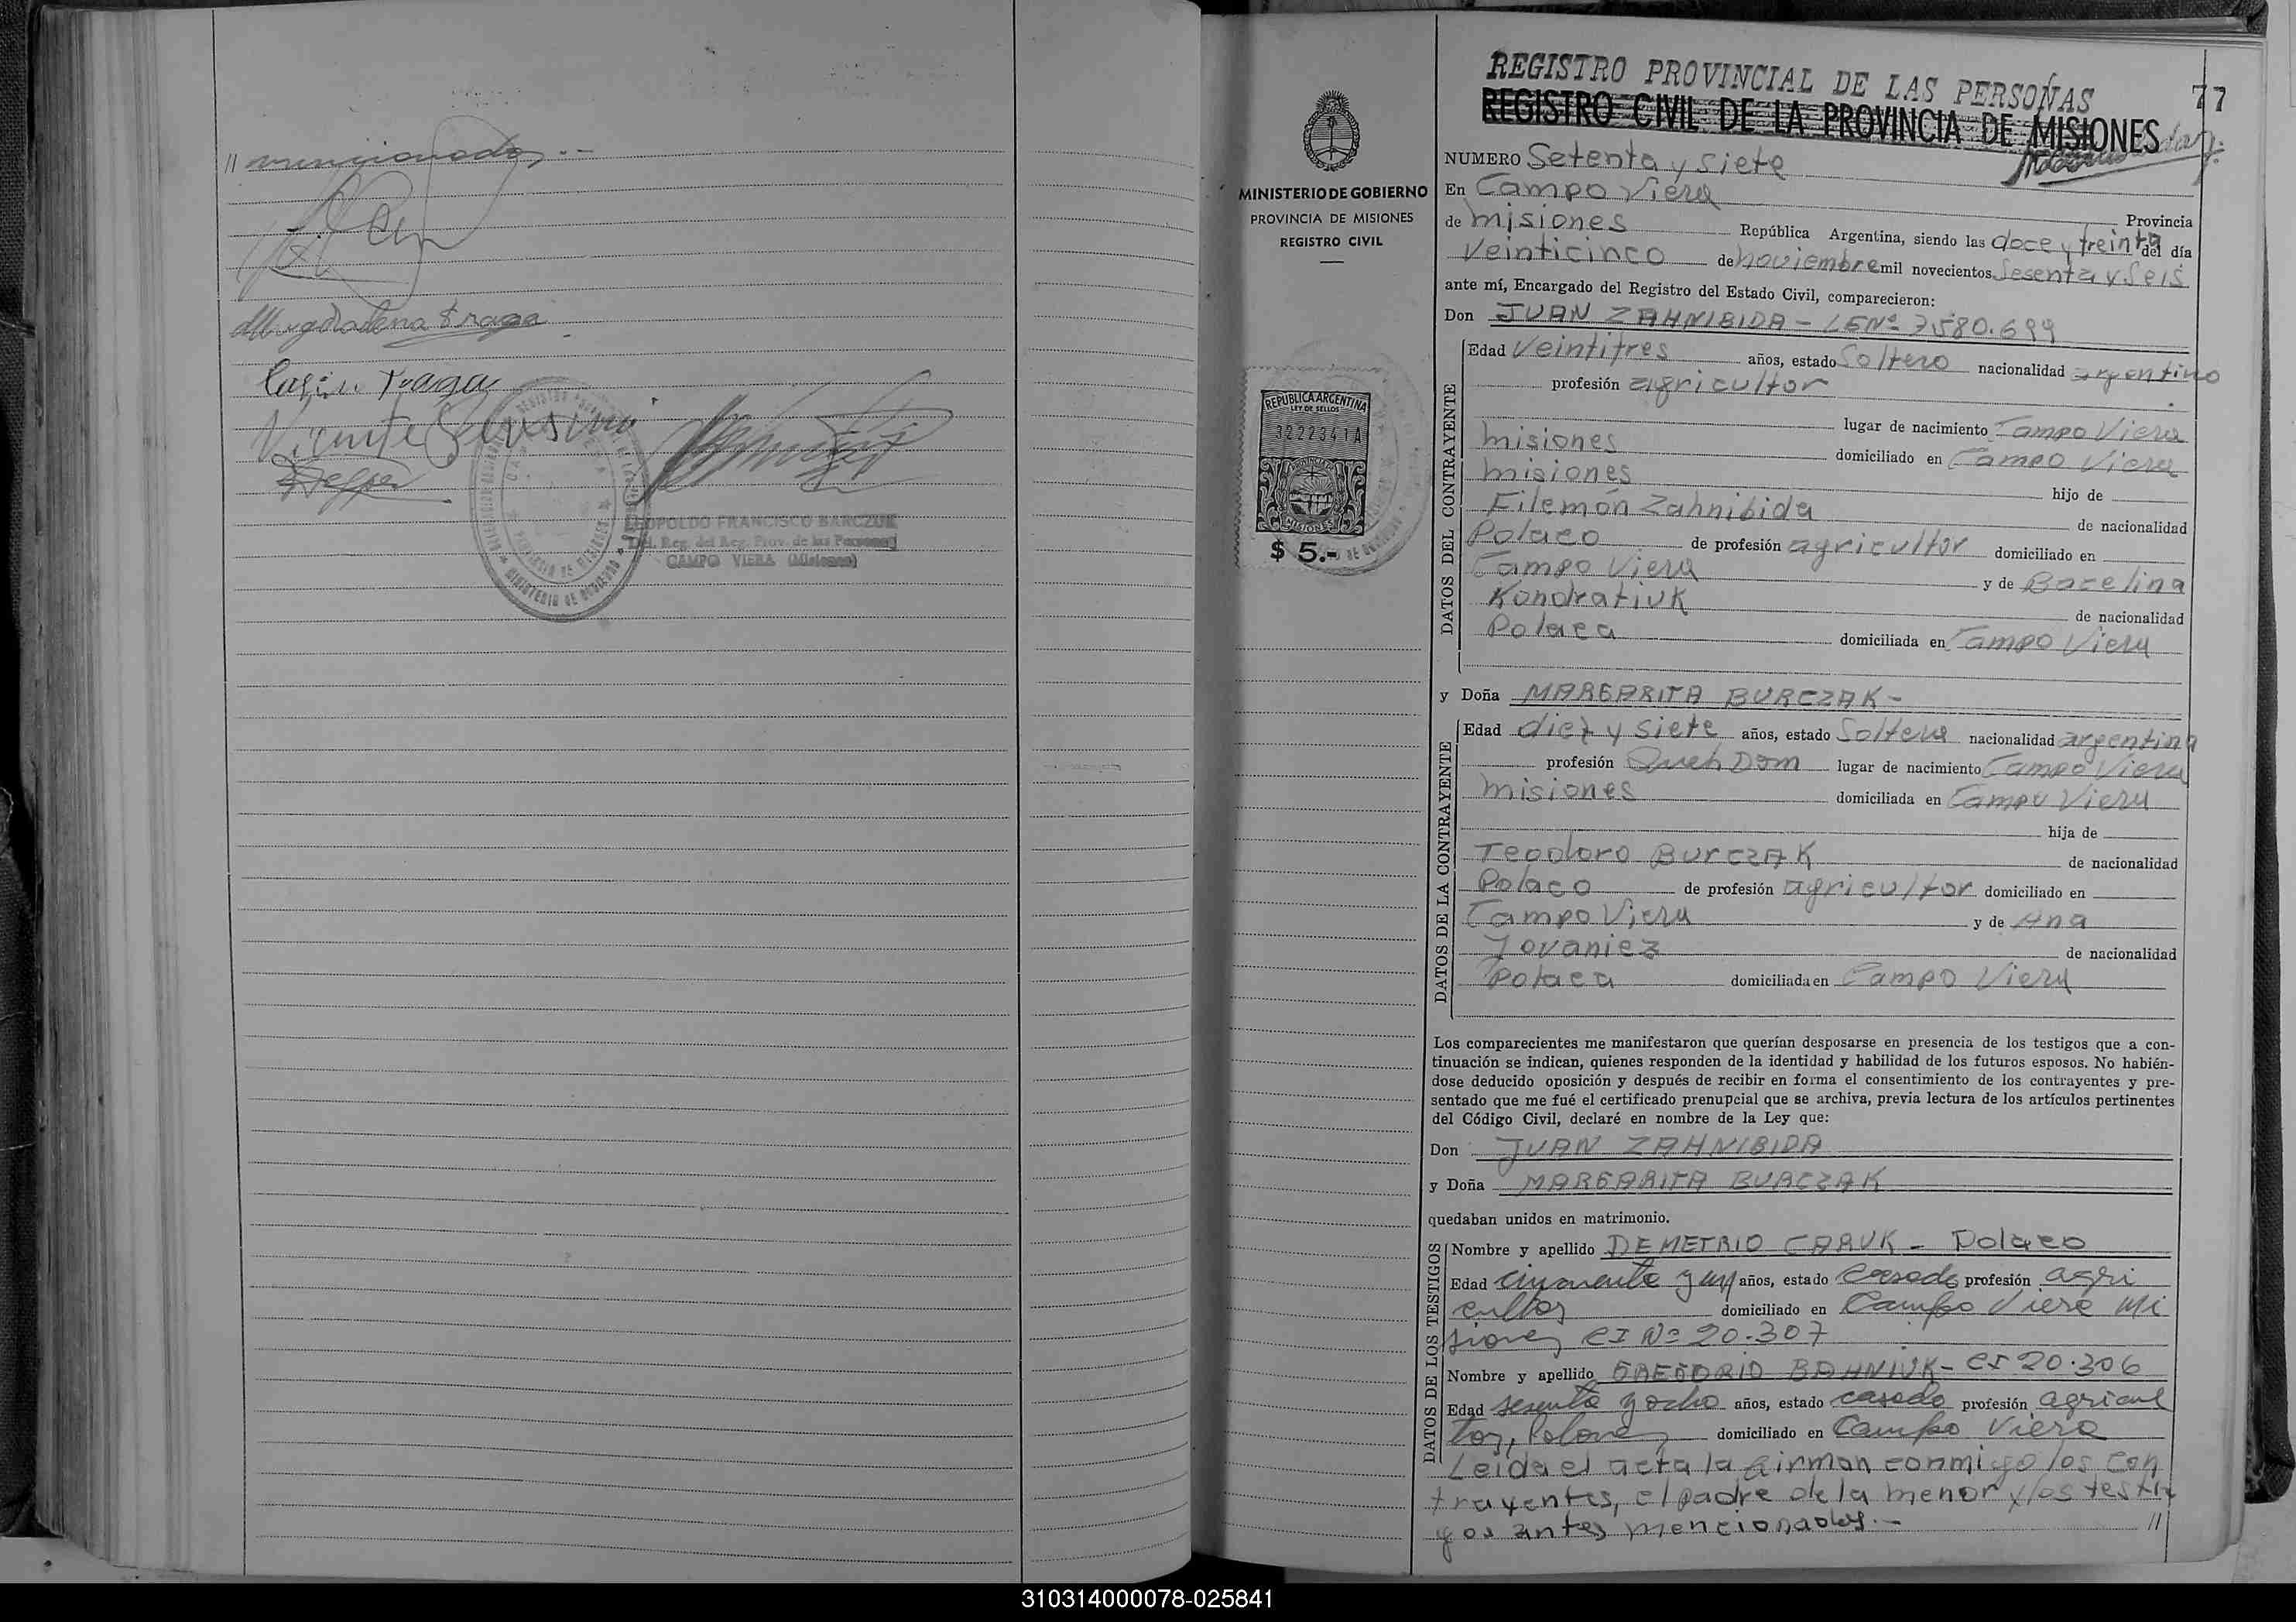 // mencionados.-
Magdalena Fraga
Vicente
LEOPOLDO FRANCISCO BARCZUK
Del. Reg. del Reg. Prov. de las Personas
CAMPO VIERA (Misiones)
MINISTERIO DE GOBIERNO
PROVINCIA DE MISIONES
REGISTRO CIVIL
REPUBLICA ARGENTINA
LEY DE SELLOS
3222341A
MISIONES
$ 5.-
REGISTRO PROVINCIAL DE LAS PERSONAS
77
REGISTRO CIVIL DE LA PROVINCIA DE MISIONES
NUMERO Setenta y siete
En Campo Viera
Provincia
de Misiones República Argentina, siendo las doce y treinta del día
Veinticinco de noviembre mil novecientos sesenta y seis
ante mí, Encargado del Registro del Estado Civil, comparecieron:
Don JUAN ZAHNIBIDA - LENº 7580.699
DATOS DEL CONTRAYENTE
Edad Veintitres años, estado Soltero nacionalidad argentino
profesión agricultor
lugar de nacimiento Campo Viera
misiones domiciliado en Campo Viera
misiones
hijo de
Filemón Zahnibida
de nacionalidad
Polaco de profesión agricultor domiciliado en
Campo Viera y de Bacelina
Kondratiuk
de nacionalidad
Polaca domiciliada en Campo Viera
y Doña MARGARITA BURCZAK-
DATOS DE LA CONTRAYENTE
Edad diez y siete años, estado Soltera nacionalidad argentina
profesión Queh Dom lugar de nacimiento Campo Viera
misiones domiciliada en Campo Viera
hija de
Teodoro BurczAK
de nacionalidad
Polaco de profesión agricultor domiciliado en
Campo Viera y de Ana
Jovaniez
de nacionalidad
Polaca domiciliada en Campo Viera
Los comparecientes me manifestaron que querían desposarse en presencia de los testigos que a con-
tinuación se indican, quienes responden de la identidad y habilidad de los futuros esposos. No habién-
dose deducido oposición y después de recibir en forma el consentimiento de los contrayentes y pre-
sentado que me fué el certificado prenupcial que se archiva, previa lectura de los artículos pertinentes
del Código Civil, declaré en nombre de la Ley que:
Don JUAN ZAHNIBIDA
y Doña MARGARITA BURCZAK
quedaban unidos en matrimonio.
DATOS DE LOS TESTIGOS
Nombre y apellido DEMETRIO CARUK - Polaco
Edad cincuenta y un años, estado casado profesión agri
cultor domiciliado en Campo Viera Mi
siones CI Nº 20.307
Nombre y apellido GREGORIO BAHNIUK - CI 20.306
Edad sesenta y ocho años, estado casado profesión agricul
tor, Polones domiciliado en Campo Viera
Leida el acta la firman conmigo los con
trayentes, el padre de la menor y los testi
gos antes mencionados.- //
310314000078-025841